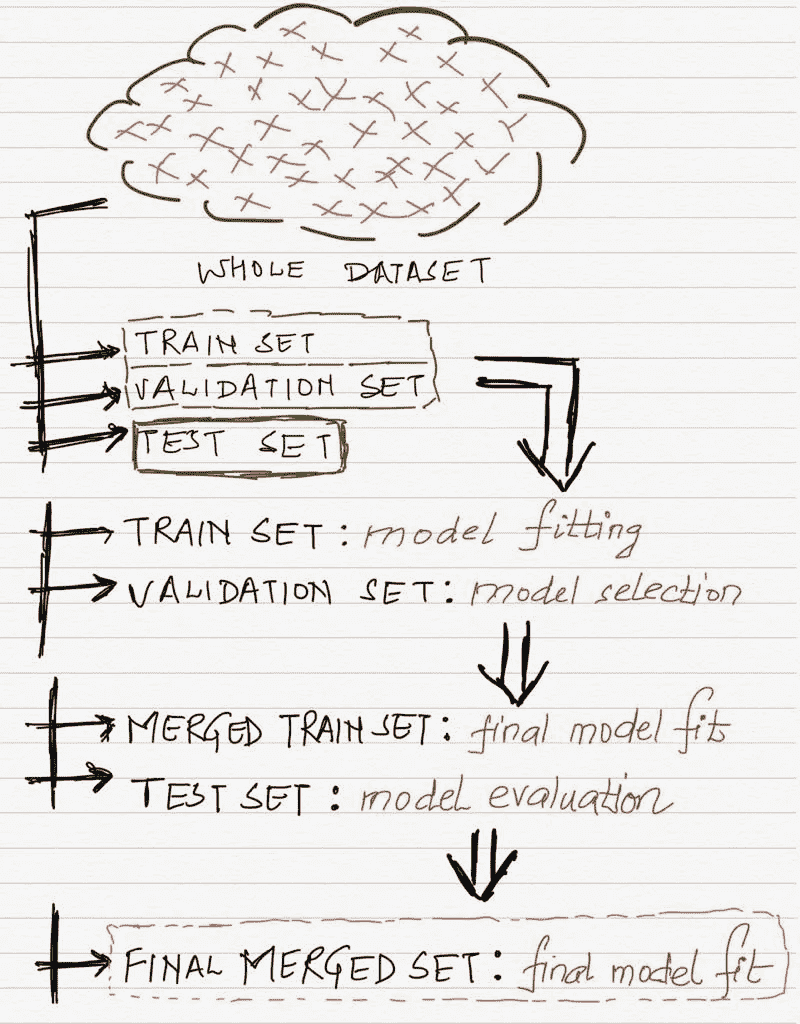 WHOLE DATASET
TRAIN SET
VALIDATION SET
TEST SET
TRAIN SET: model fitting
VALIDATION SET: model selection
MERGED TRAIN SET: final model fit
TEST SET: model evaluation
FINAL MERGED SET: final model fit